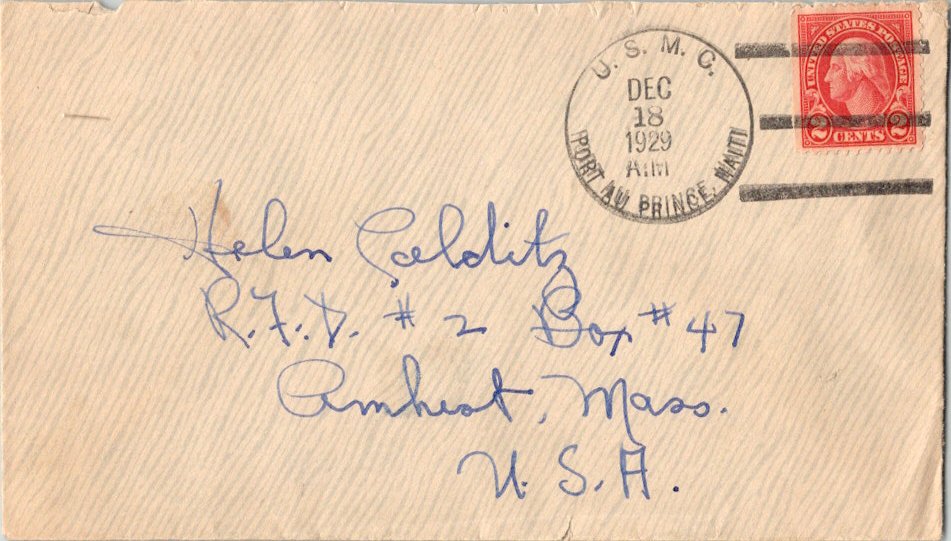 U. S. M. C.
DEC
18
1929
A.M
PORT AU PRINCE, HAITI
UNITED STATES POSTAGE
2 CENTS 2
Helen Colditz
R.F.D. # 2 Box # 47
Amherst, Mass.
U. S. A.